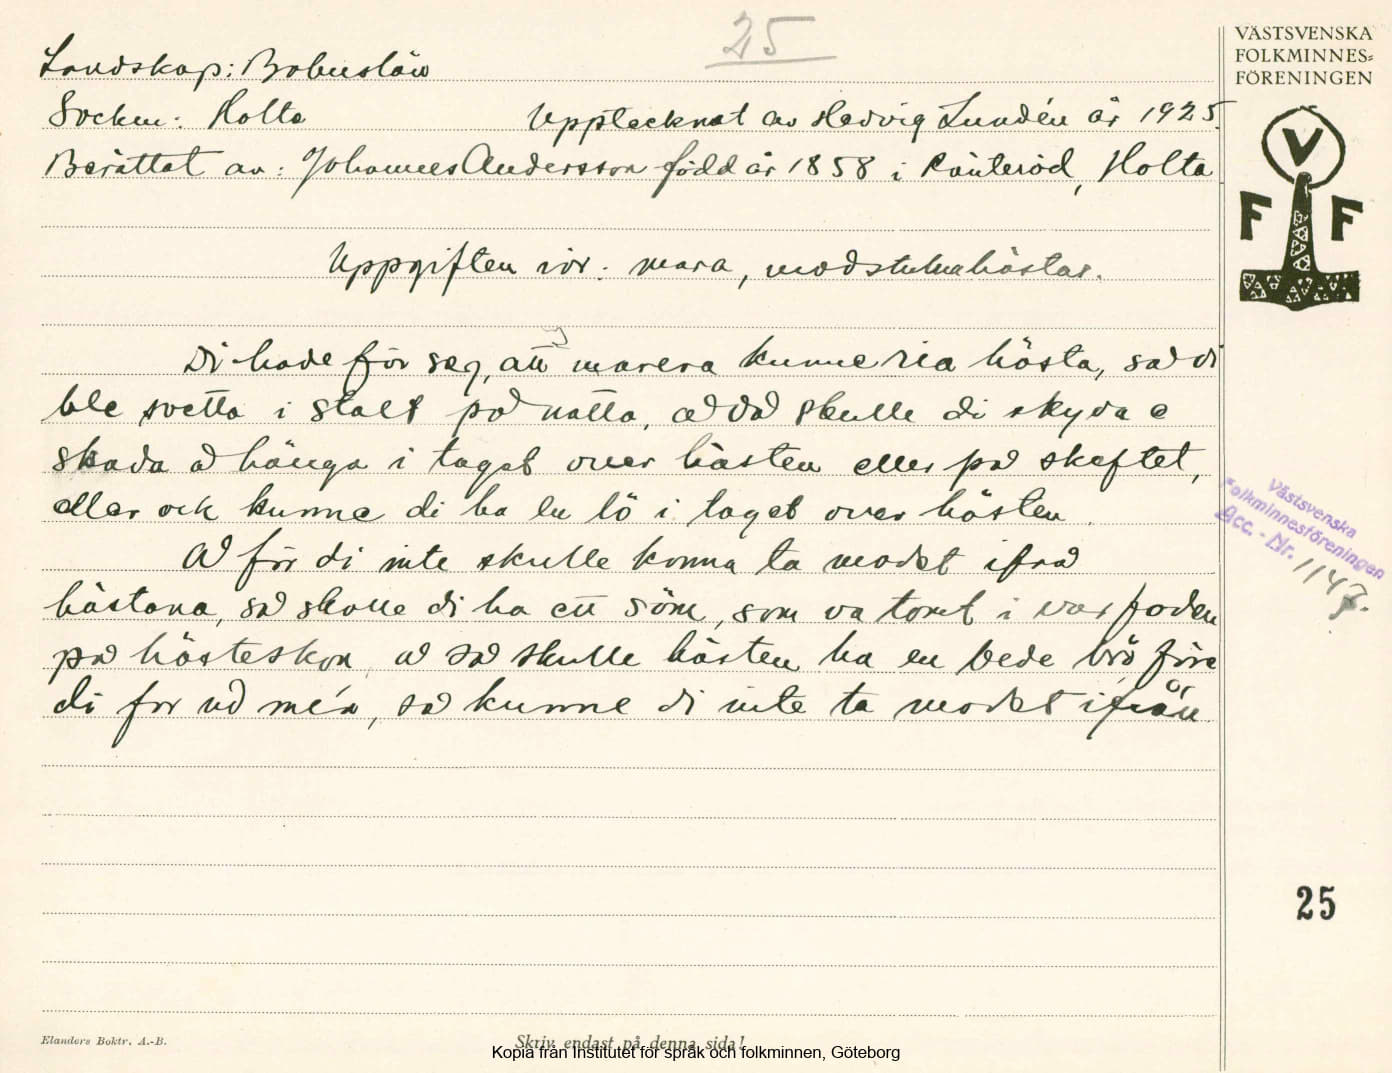 25
VÄSTSVENSKA
FOLKMINNES=
FÖRENINGEN
Landskap: Bohuslän
Socken: Holta Upptecknat av Hedvig Lundén år 1925.
Berättat av: Johannes Andersson född år 1858 i Ränteröd, Holta
V
F F
Uppgiften rör: mara, modstulna hästar.
Di hade för seg, att marera kunne ria hästa, så di
ble svetta i stalt på natta, å då skulle di skyda e
skada å hänga i taget over hästen eller på skeftet,
eller ock kunne di ha en lö i taget over hästen.
Å för di inte skulle konna ta modet ifrå
hästana, så skolle di ha ett söm, som va tomt i var foden
på hästeskon, å så skulle hästen ha en bede brö före
di for ud mé'n, så kunne di inte ta modet ifrån
Västsvenska
Folkminnesföreningen
Acc. - Nr. 1147.
25
Elanders Boktr. A.-B.
Skriv endast på denna sida!
Kopia från Institutet för språk och folkminnen, Göteborg